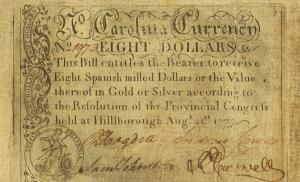 No. Carolina Currency
No. 1973 EIGHT DOLLARS
This Bill entitles the Bearer to receive
Eight Spanish milled Dollars or the Value
thereof in Gold or Silver according to
the Resolution of the Provincial Congress
held at Hillsborough Augt. 1775
Richd Caswell
Sam Johnston